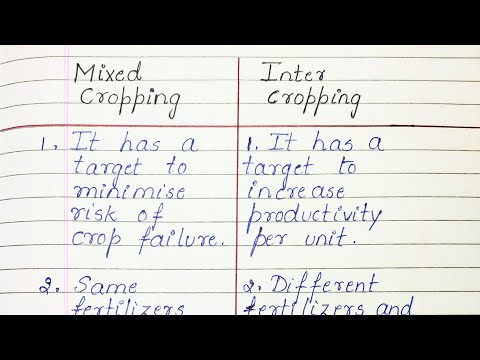 Mixed Cropping
Inter Cropping
1. It has a
target to
minimise
risk of
crop failure.
1. It has a
target to
increase
productivity
per unit.
2. Same
fertilizers
2. Different
fertilizers and